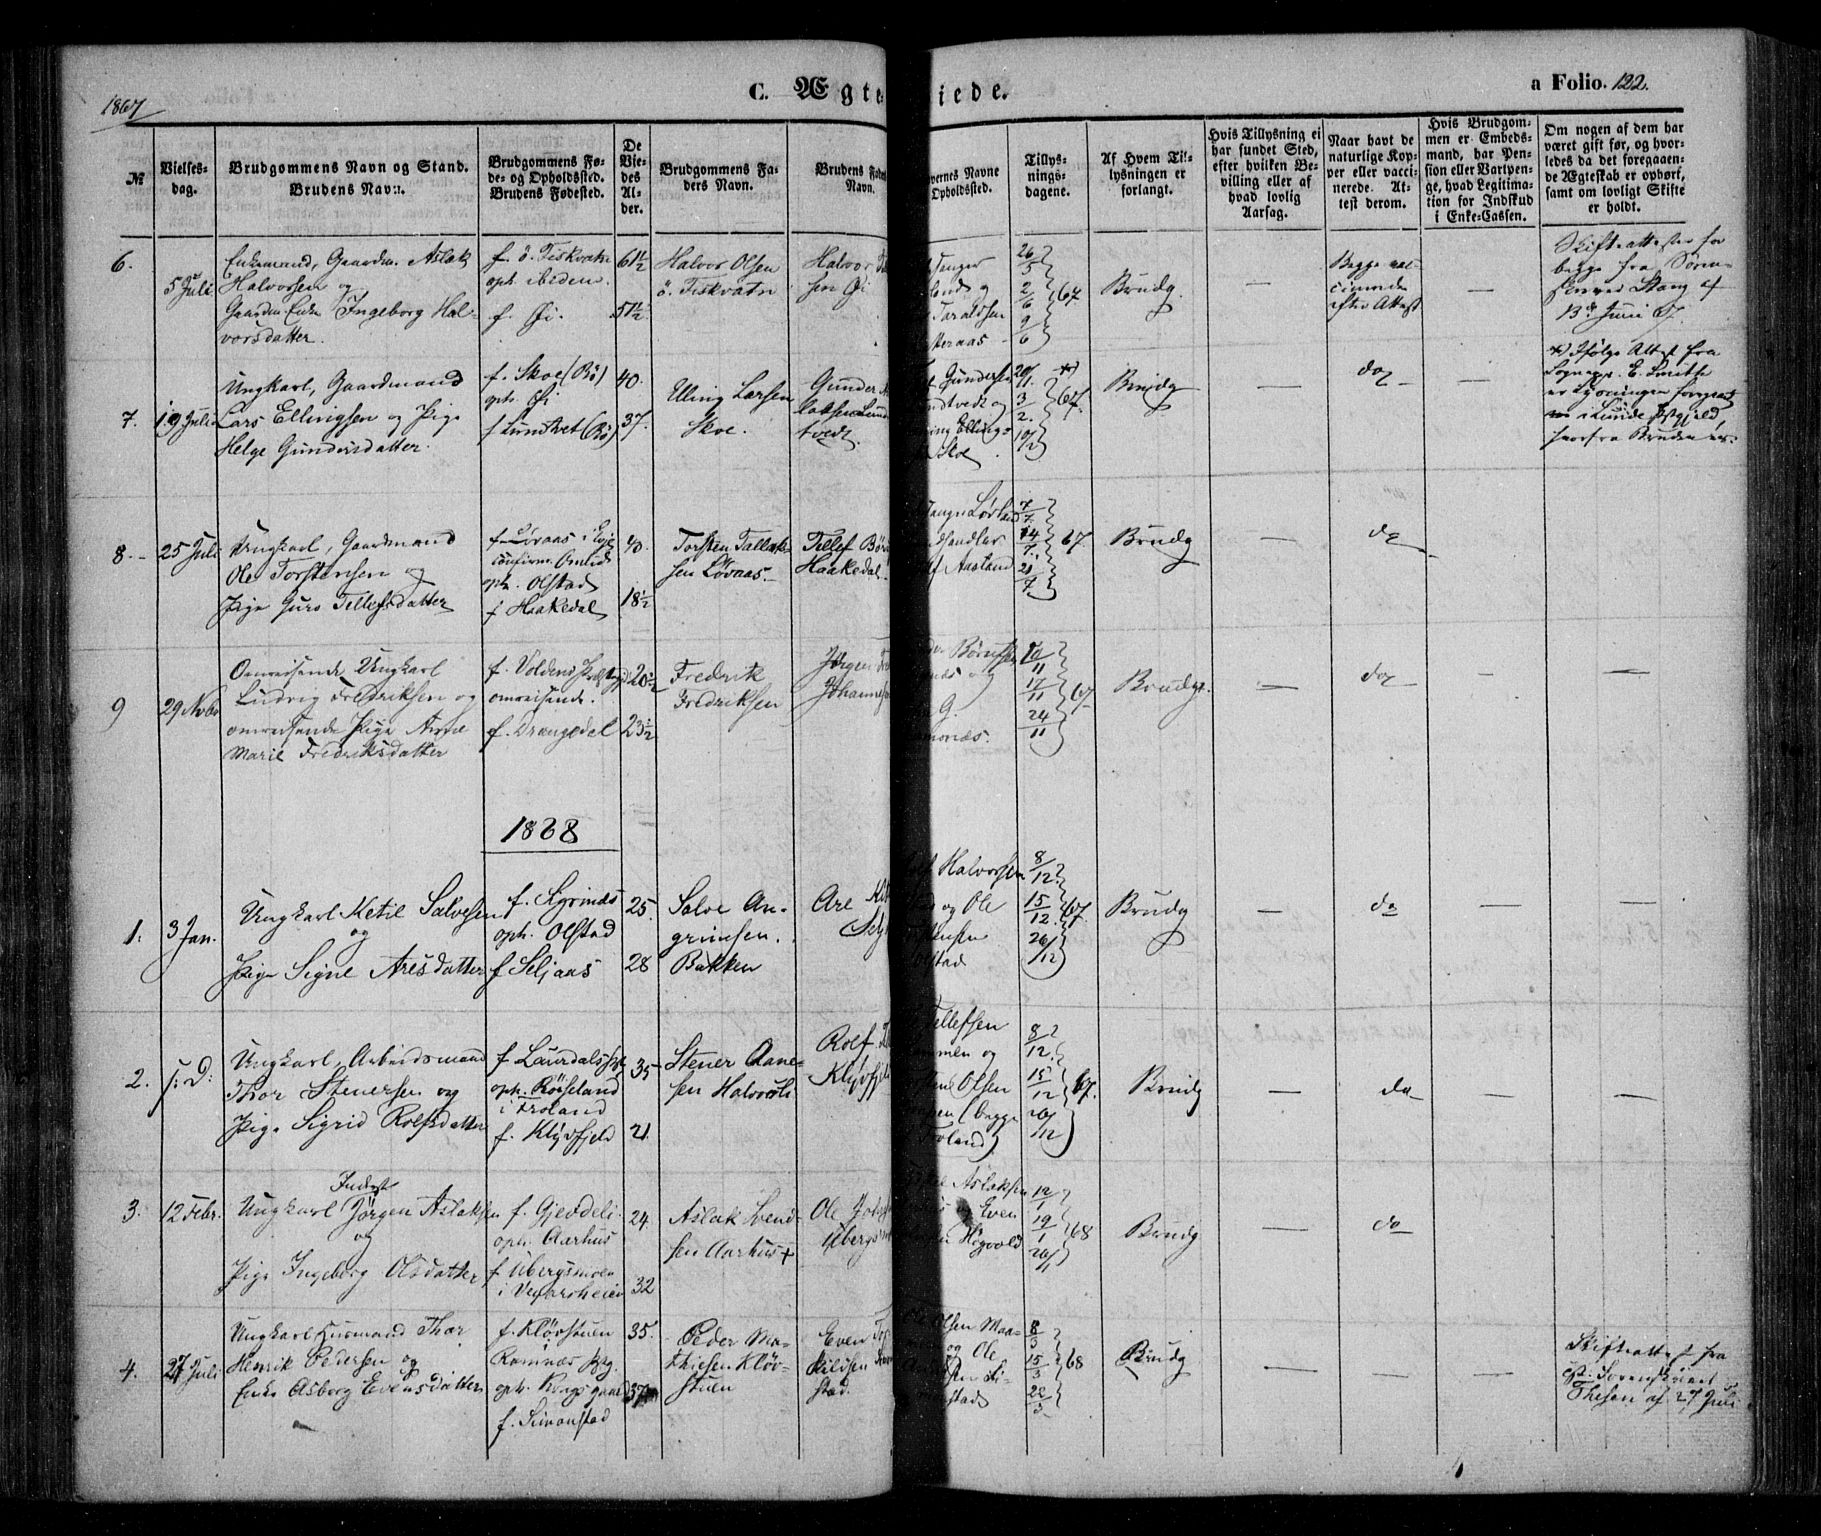 1867
C. Ægte
iede.
a Folio. 122.
№
Vielses-
dag.
Brudgommens Navn og Stand.
Brudens Navn.
Brudgommens Fø-
de- og Opholdssted.
Brudens Fødested.
De
Vie-
des
Al-
der.
Brudgommens Fa-
ders Navn.
Brudens Fad
Navn.
vernes Navne
Opholdssted.
Tillys-
nings-
dagene.
Af Hvem Til-
lysningen er
forlangt.
Hvis Tillysning ei
har fundet Sted,
efter hvilken Be-
villing eller af
hvad lovlig
Aarsag.
Naar havt de
naturlige Kop-
per eller vacci-
nerede. At-
test derom.
Hvis Brudgom-
men er Embeds-
mand, har Pen-
sion eller Vartpen-
ge, hvad Legitima-
tion for Indskud
i Enke-Cassen.
Om nogen af dem har
været gift før, og hvor-
ledes da det foregaaen-
de Ægteskab er ophørt,
samt om lovligt Skifte
er holdt.
6.
5 Juli
Enkemand, Gaardm. Aslak
Halvorsen og
Gaardm. Enke Ingeborg Hal-
vorsdatter.
f. ö. Fiskvatn
oph. ibidem.
f. Øi.
61½
51½
Halvor Olsen
ö. Fiskvatn
Halvor
sen Øi
26/5
2/6
9/6
67
Brudg.
Begge vac-
cinerede
efter Attest
—
—
Skifteattester for
begge fra Soren-
skriver Stang af
13de Juni 67.
7.
19 Juli
Ungkarl, Gaardmand
Lars Ellingsen og Pige
Helge Gundersdatter.
f. Skoe (Bö)
oph. Øi
f Lundtvet (Bö)
40.
37.
Elling Larsen
Skoe.
Gunder
Lund
tvedt.
Gunders
ndtvedt og
ning Ellings-
Skoe
3/2.
10/2
67.
Brudg
—
do
—
*) Ifølge Attest fra
Sognepr. E. Smith
er Lysningen foregaaet
i Lunde Præstegjeld
hvorfra Bruden er.
8.
25 Juli
Ungkarl, Gaardmand
Ole Torstensen og
Pige Guro Tellefsdatter
f. Lövaas i Evje
confirm. Omlid
oph. Olstad
f Haakedal
40.
18½
Torsten Tallak-
sen Lövaas.
Tellef
Haakedal
Lövland
dhandler
Aasland
7/7.
14/7.
21/7.
67.
Brudg
—
do
—
9
29 Novb.
Omreisende Ungkarl
Ludvig Fredriksen og
omreisende Pige Anne
Marie Fredriksdatter
f. Voldens
omreisende.
f. Drangedal
20½
23½
Fredrik
Fredriksen
Jørgen
Johannes
G.
10/11
17/11
24/11
67
Brudg.
—
do
—
—
1868
1.
3 Jan.
Ungkarl Ketil Salvesen
og
Pige Signe Aresdatter
f. Sigrinæs
oph. Olstad
f Seljaas
25.
28
Salve An-
grimsen.
Bakken
Are
Selj
Halvorsen
og Ole
stad
8/12.
15/12.
26/12
67.
Brudg
—
do
—
—
2.
s: D:
Ungkarl, Arbeidsmand
Thor Stenersen og
Pige Sigrid Rolfsdatter
f Laurdals
oph. Röiseland
i Froland
f. Klyvfjeld
35
21.
Stener Aane-
sen Halvorsli
Rolf
Klyvfje
Tellefsen
men og
Olsen
(begge
Froland)
8/12.
15/12
26/12
67.
Brudg
—
do
—
—
3.
12 Febr.
Inderst
Ungkarl Jörgen Aslaksen
og
Pige Ingeborg Olsdatter
f. Gjevdeli
oph. Aarhus
f Ubergsmoen
i Vegarsheien
24.
32
Aslak Svend-
sen Aarhus +
Ole
Ubergs
Aslaksen
Even
Högvold
12/1
19/1
26/1
68
Brudg
—
do
—
4.
27 Juli
Ungkarl Husmand Thor
Henrik Pedersen og
Enke Asborg Evensdatter
f. Klövstuen
Ramnæs
oph. Kongsgaard
f. Simonstad
35.
37
Peder Ma-
thiesen Klöv-
stuen
Even
kildsen
stad.
Olsen Maa-
og Ole
stad
8/3
15/3
22/3
68
Brudg
—
—
—
Skifteattest fra
Sorenskriver
Thesen af 27 Juli